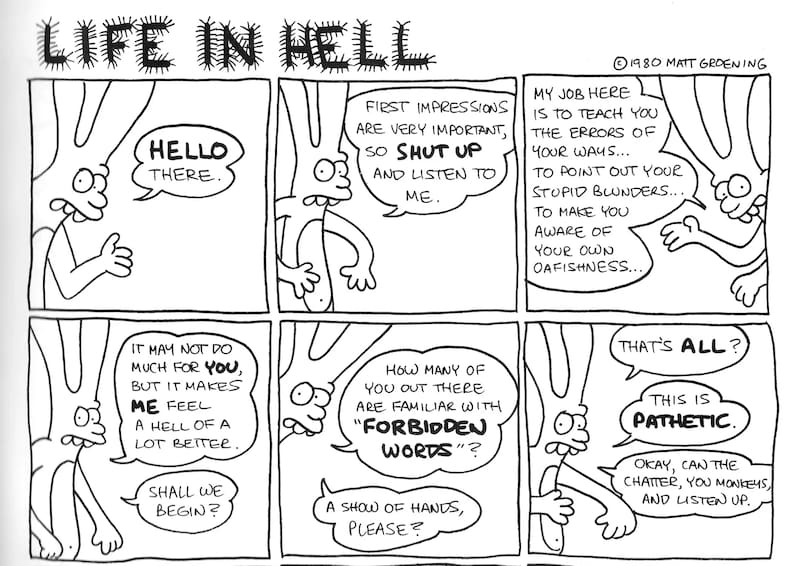 LIFE IN HELL
©1980 MATT GROENING
HELLO
THERE.
FIRST IMPRESSIONS
ARE VERY IMPORTANT,
SO SHUT UP
AND LISTEN TO
ME.
MY JOB HERE
IS TO TEACH YOU
THE ERRORS OF
YOUR WAYS...
TO POINT OUT YOUR
STUPID BLUNDERS...
TO MAKE YOU
AWARE OF
YOUR OWN
OAFISHNESS...
IT MAY NOT DO
MUCH FOR YOU,
BUT IT MAKES
ME FEEL
A HELL OF A
LOT BETTER.
SHALL WE
BEGIN?
HOW MANY OF
YOU OUT THERE
ARE FAMILIAR WITH
"FORBIDDEN
WORDS"?
A SHOW OF HANDS,
PLEASE?
THAT'S ALL?
THIS IS
PATHETIC.
OKAY, CAN THE
CHATTER, YOU MONKEYS,
AND LISTEN UP.